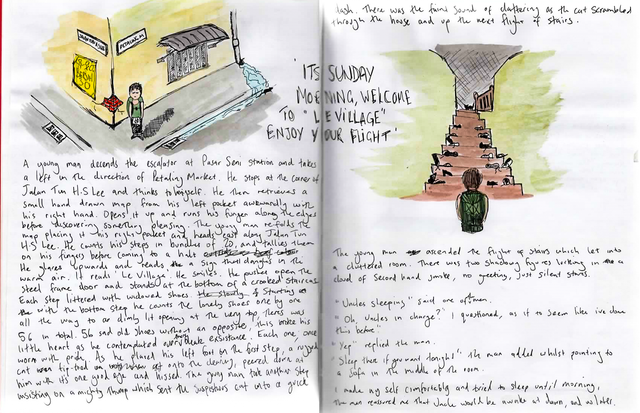 'ITS SUNDAY
MORNING, WELCOME
TO "LE VILLAGE"
ENJOY YOUR FLIGHT'
A young man decends the escalator at Pasar Seni station and takes
a left in the direction of Petaling Market. He stops at the corner of
Jalan Tun H.S Lee and thinks to himself. He then retrieves a
small hand drawn map from his left pocket awkwardly with
his right hand. Opens it up and runs his finger along the edges
before discovering something pleasing. The young man refolds the
map placing it his right pocket and heads east along Jalan Tun
H.S Lee. He counts his steps in bundles of 20, and tallies them
on his fingers before coming to a halt
He glares upwards and reads a sign that dangles in the
warm air. It reads 'Le Village'. He smiles. He pushes open the
steel frame door and stands at the bottom of a crooked staircase
Each step littered with unloved shoes. Starting
with the bottom step he counts the lonely shoes one by one
all the way to a dimly lit opening at the very top, There was
56 in total. 56 sad old shoes without an opposite, this broke his
little heart as he contemplated existence. Each one, once
warm with pride. As he placed his left foot on the first step, a rugged
cat tip-toed onto the peered down at
him with its one good eye and hissed. The young man took another step
insisting on a mighty thump which sent the suspicious cat into a quick
dash. There was the faint sound of clattering as the cat scrambled
through the house and up the next flight of stairs.
The young man ascended the flight of stairs which led into
a cluttered room. There was two shadowy figures lurking in a
cloud of second hand smoke, no greeting, just silent stares.
"Uncles sleeping" said one of men.
"Oh, Uncles in charge?" I questioned, as it to seem like ive done
this before"
"Yep" replied the man.
"Sleep there if you want tonight". The man added whilst pointing to
a sofa in the middle of the room.
I made my self comfortably and tried to sleep until morning,
The man reassured me that Uncle would be awake at dawn, and no later.